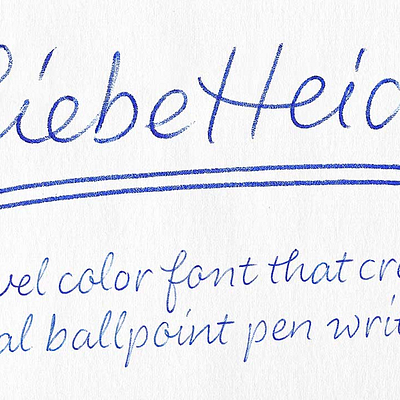 iebeHeid
vel color font that cre
al ballpoint pen writ